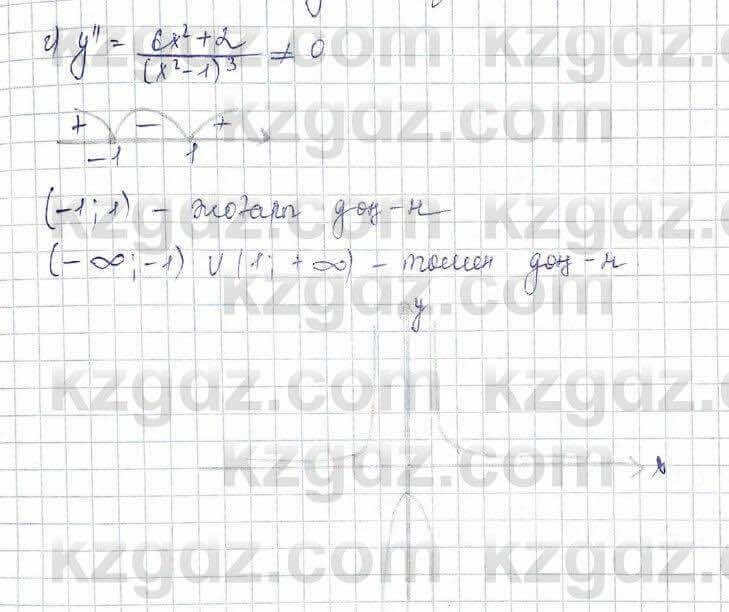 г) y'' = (6x² + 2) / (x² - 1)³ ≠ 0
+ - +
-1 1
(-1; 1) - жоғары доң-н
(-∞; -1) ∪ (1; +∞) - төмен доң-н
y
x
kzgdz.com
kzgdz.com
kzgdz.com
kzgdz.com
kzgdz.com
kzgdz.com
kzgdz.com
kzgdz.com